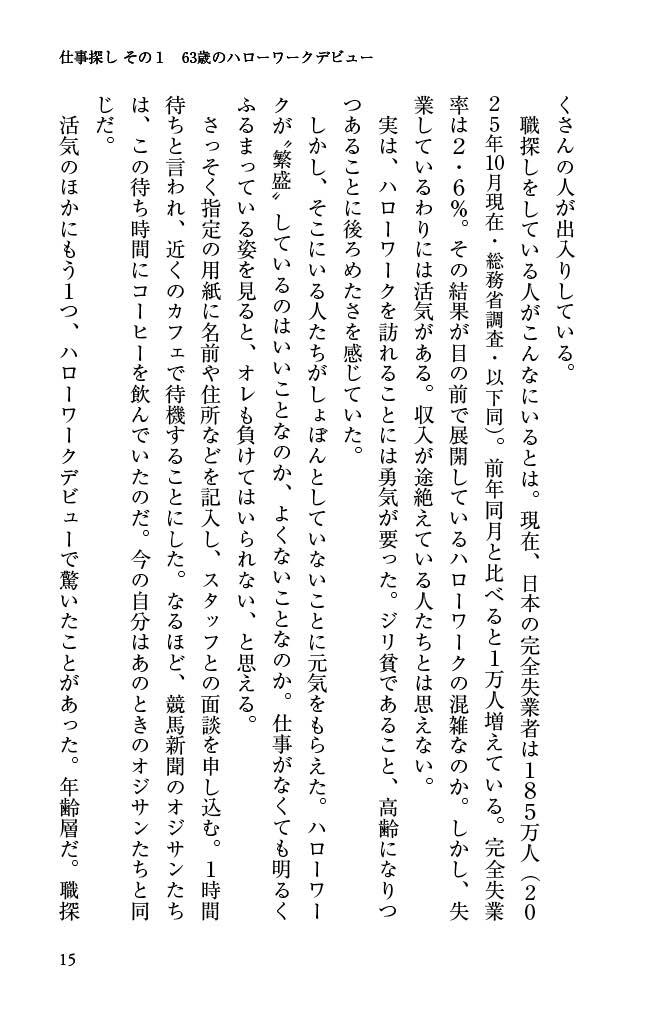 仕事探し その1　63歳のハローワークデビュー
くさんの人が出入りしている。
　職探しをしている人がこんなにいるとは。現在、日本の完全失業者は185万人（20
25年10月現在・総務省調査・以下同）。前年同月と比べると1万人増えている。完全失業
率は2・6％。その結果が目の前で展開しているハローワークの混雑なのか。しかし、失
業しているわりには活気がある。収入が途絶えている人たちとは思えない。
　実は、ハローワークを訪れることには勇気が要った。ジリ貧であること、高齢になりつ
つあることに後ろめたさを感じていた。
　しかし、そこにいる人たちがしょぼんとしていないことに元気をもらえた。ハローワー
クが〝繁盛〟しているのはいいことなのか、よくないことなのか。仕事がなくても明るく
ふるまっている姿を見ると、オレも負けてはいられない、と思える。
　さっそく指定の用紙に名前や住所などを記入し、スタッフとの面談を申し込む。1時間
待ちと言われ、近くのカフェで待機することにした。なるほど、競馬新聞のオジサンたち
は、この待ち時間にコーヒーを飲んでいたのだ。今の自分はあのときのオジサンたちと同
じだ。
　活気のほかにもう1つ、ハローワークデビューで驚いたことがあった。年齢層だ。職探
15